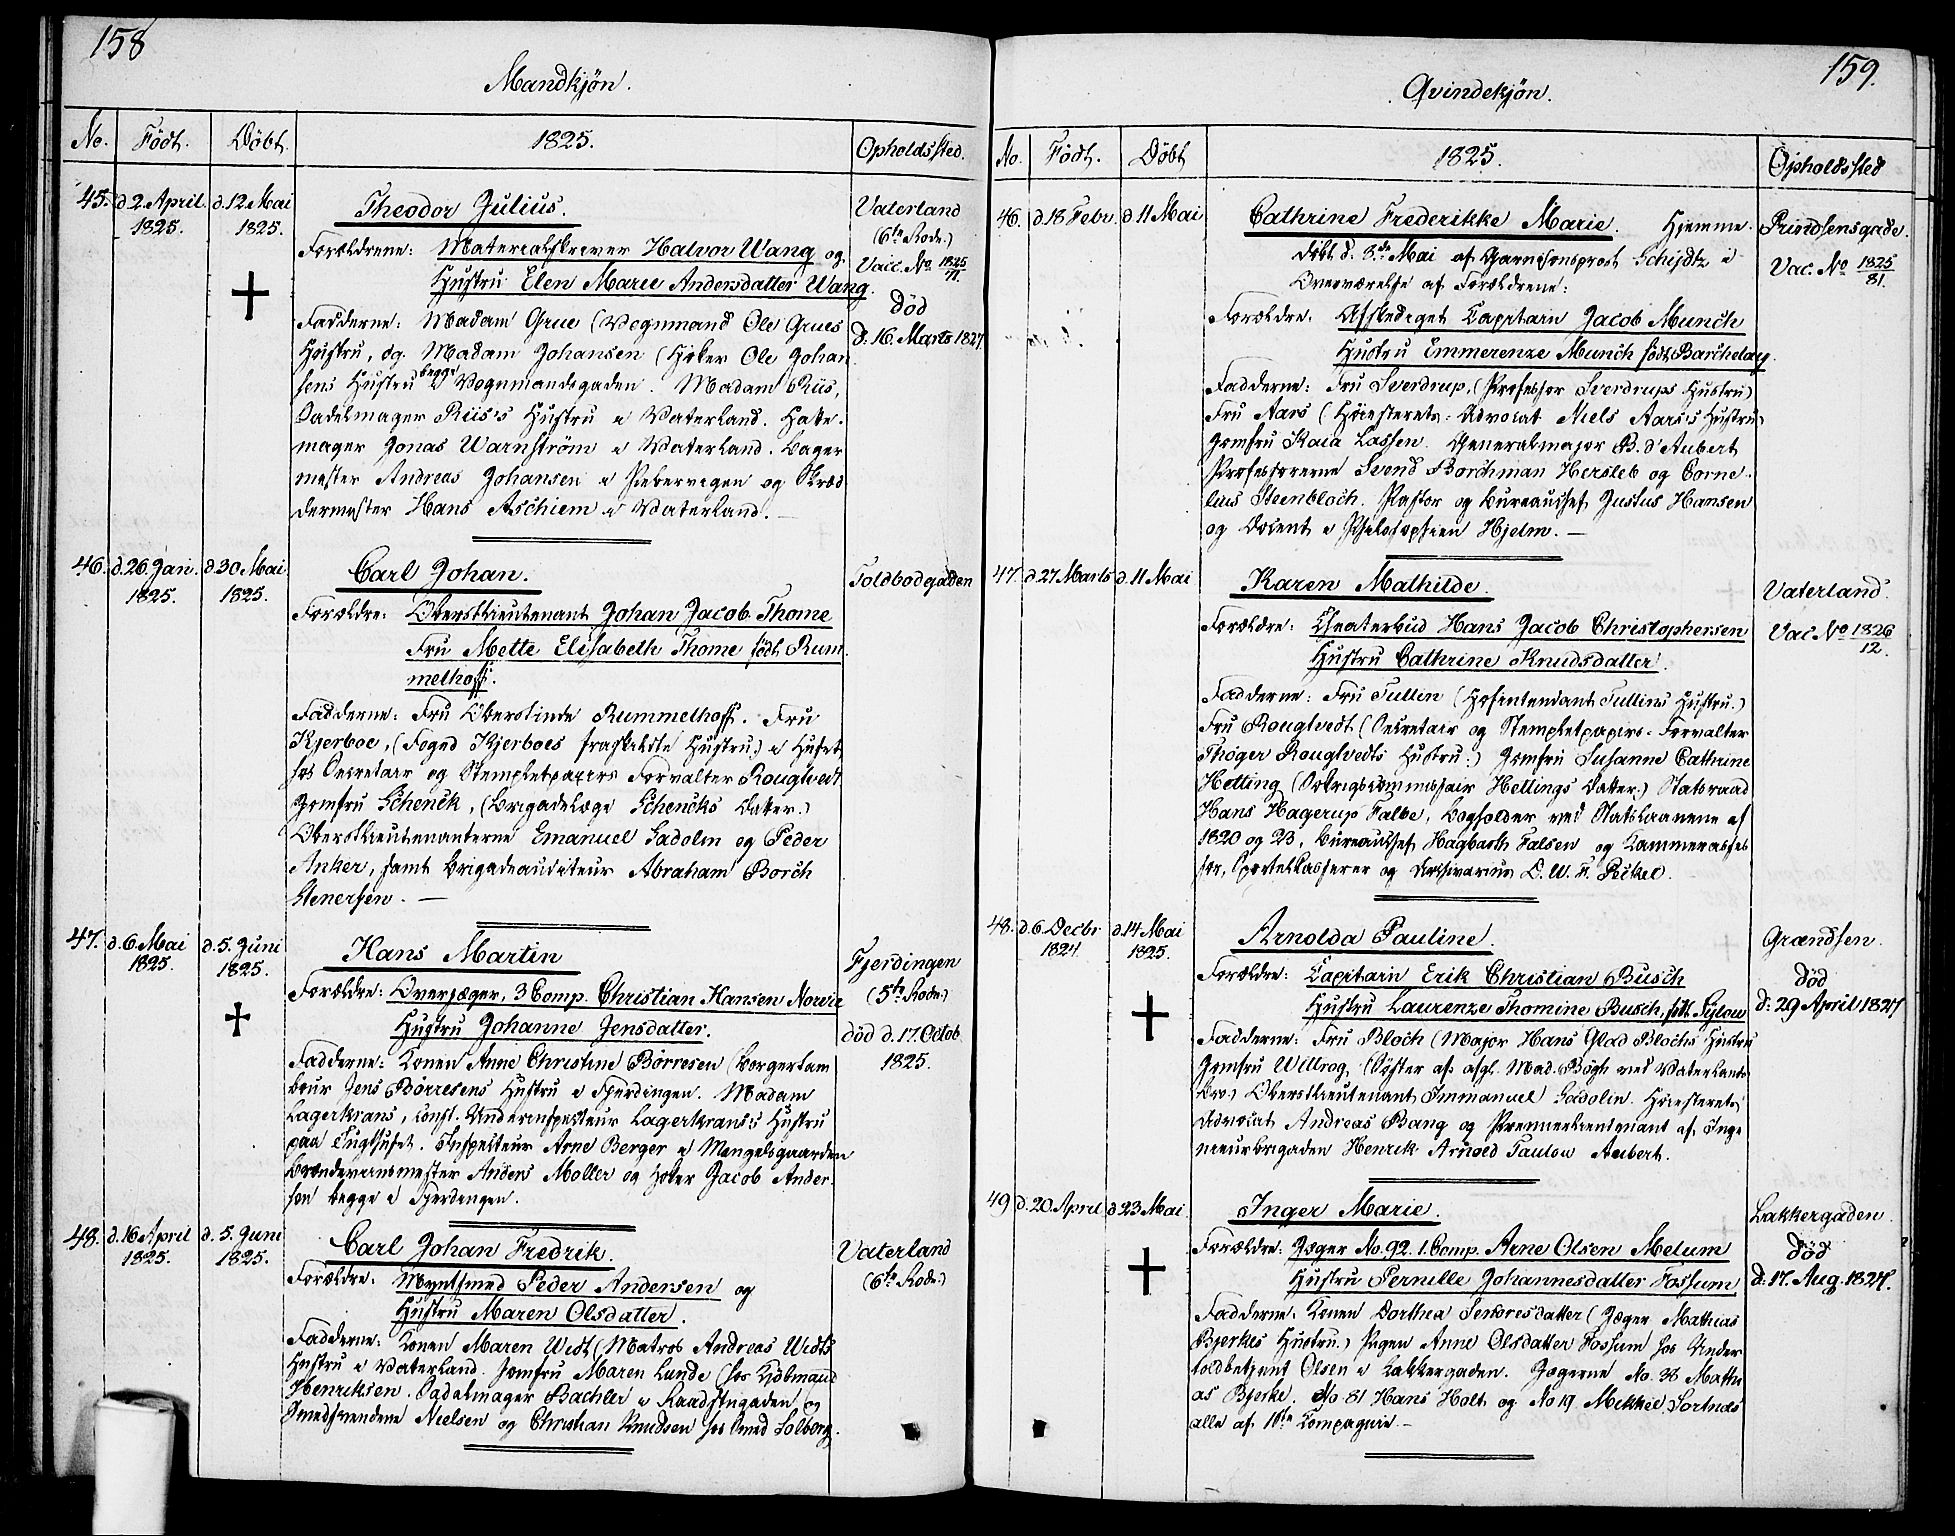 158
Mandkjøn.
No. Födt. Döbt. 1825. Opholdssted.
45. d. 2. April 1825. d. 12 Mai 1825.
Theodor Julius.
Forældrene: Materialskriver Halvor Wang og
Hustru Elen Marie Andersdatter Wang.
Fadderne: Madam Grue (Vognmand Ole Grues
Hustru, og Madam Johansen (Høker Ole Johan
sens Hustru begge i Vognmandsgaden. Madam Riis,
Sadelmager Riis's Hustru i Vaterland. Hatte-
mager Jonas Warnström i Vaterland. Bager
mester Andreas Johansen i Pebervigen og Skræd
dermester Hans Aschiem i Vaterland. —
Vaterland
(6te Rode.)
Vacc. No 1825/71.
död
d: 16. Marts 1827.
46. d. 26 Jan. 1825. d. 30 Mai 1825.
Carl Johan.
Forældre: Oberstlieutenant Johan Jacob Thome
Fru Mette Elisabeth Thome født Rum
melhoff.
Fadderne: Fru Oberstinde Rummelhoff. Fru
Kjerboe, (Foged Kjerboes fraskilte Hustru.) i Huset
hos Secretair og Stempletpapirs Forvalter Rougtvedt
Jomfru Schenck, (Brigadelæge Schencks Datter.)
Oberstlieutenanterne Emanuel Gadolin og Peder
Anker, samt Brigadeauditeur Abraham Borch
Stenersen. —
Toldbodgaden
47. d. 6. Mai 1825. d. 5. Juni 1825.
Hans Martin
Forældre: Overjæger, 3 Comp. Christian Hansen
Hustru Johanne Jensdatter.
Fadderne: Konen Anne Christine Börresen (Borgertam
bour Jens Börresens Hustru i Fjerdingen. Madam
Lagerkrans, const. Underinspecteur Lagerkrans's Hustru
paa Tugthuset. Inspecteur Arne Berger i Mangelsgaarden
Brændeviinsmester Anders Moller og Høker Jacob Ander
sen begge i Fjerdingen.
Fjerdingen
(5te Rode.)
död d. 17. Octob.
1825.
48. d. 16 April 1825. d. 5. Juni 1825.
Carl Johan Fredrik.
Forældre: Myntsmed Peder Andersen og
Hustru Maren Olsdatter.
Fadderne: Konen Maren Wist (Matros Andreas Wists
Hustru i Vaterland. Jomfru Maren Lunde (hos Kjöbmand
Henriksen. Sadelmager Bachler i Raadhusgaden og
Smedsvendene Nielsen og Christian Knudsen hos Smed Solberg.
Vaterland
(6te Rode.)
159.
Qvindekjön.
No. Födt. Döbt 1825. Opholdssted
46. d. 18 Febr. d. 11 Mai
Cathrine Frederikke Marie. Hjemme-
döbt d. 3de Mai af Garnisonsprost Schydtz i
Overværelse af Forældrene:
Forældre: Afskediget Capitain Jacob Munch
Hustru Emmerenze Munch født Barchelay.
Fadderne: Fru Sverdrup, (Professor Sverdrups Hustru)
Fru Aars (Höiesterets-Advocat Niels Aars's Hustru)
Jomfru Kaia Lassen. Generalmajor B. d'Aubert
Professorerne Svend Borchman Hersleb og Corne-
lius Steenbloch. Pastor og Bureauchef Justus Hansen
og Docent i Philosophien Hjelm. —
Prindsensgade.
Vac. No 1825/81.
47. d. 27 Marts d. 11 Mai
Karen Mathilde.
Forældre: Theaterbud Hans Jacob Christophersen
Hustru Cathrine Knudsdatter.
Fadderne: Fru Tullin (Hofintendant Tullins Hustru.)
Fru Rougtvedt (Secretair og Stempletpapirs-Forvalter
Thöger Rougtvedts Hustru.) Jomfru Susanne Cathrine
Hetting (Sotrigscommissair Hettings Datter.) Statsraad
Hans Hagerup Falbe, Bogholder ved Statslaanene af
1820 og 23, Bureauchef Hagbarth Falsen og Kammerasses
sor, Sportelkasserer og Archivarius D. W. F. Rikel.
Vaterland.
Vac No 1826/12.
48. d. 6. Decbr 1824. d. 14 Mai 1825.
Arnolda Pauline.
Forældre: Capitain Erik Christian Busch
Hustru Laurenze Thomine Busch, född Sylow
Fadderne: Fru Bloch (Major Hans Glad Blochs Hustru
Jomfru Willrog, (Syster af afgl. Mad. Bögh ved Vaterlands
Bro.) Oberstlieutenant Immanuel Gadolin. Höiesterets
Advocat Andreas Bang og Premierlieutenant af Inge
nieurbrigaden Henrik Arnold Taulow Aubert.
Grændsen.
död
d: 29 April 1827
49 d. 20 April d 23 Mai
Inger Marie.
Forældre: Jæger No. 92. 1. Comp. Arne Olsen Melum
Hustru Pernille Johannesdatter Fossum
Fadderne: Konen Dorthea (Jæger Mathias
Bjerkes Hustru.) Pigen Anne Olsdatter Fossum hos Under
toldbetjent Olsen i Lakkergaden. Jægerne No. 38 Mathi
as Bjerke, No 81 Hans Holt og No 19 Mikkel Sortnæs
alle af 1ste Compagnie —
Lakkergaden.
död
d. 17. Aug. 1827.